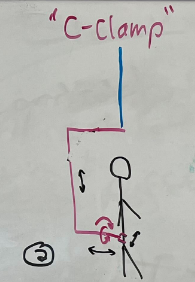 "C-Clamp"
2